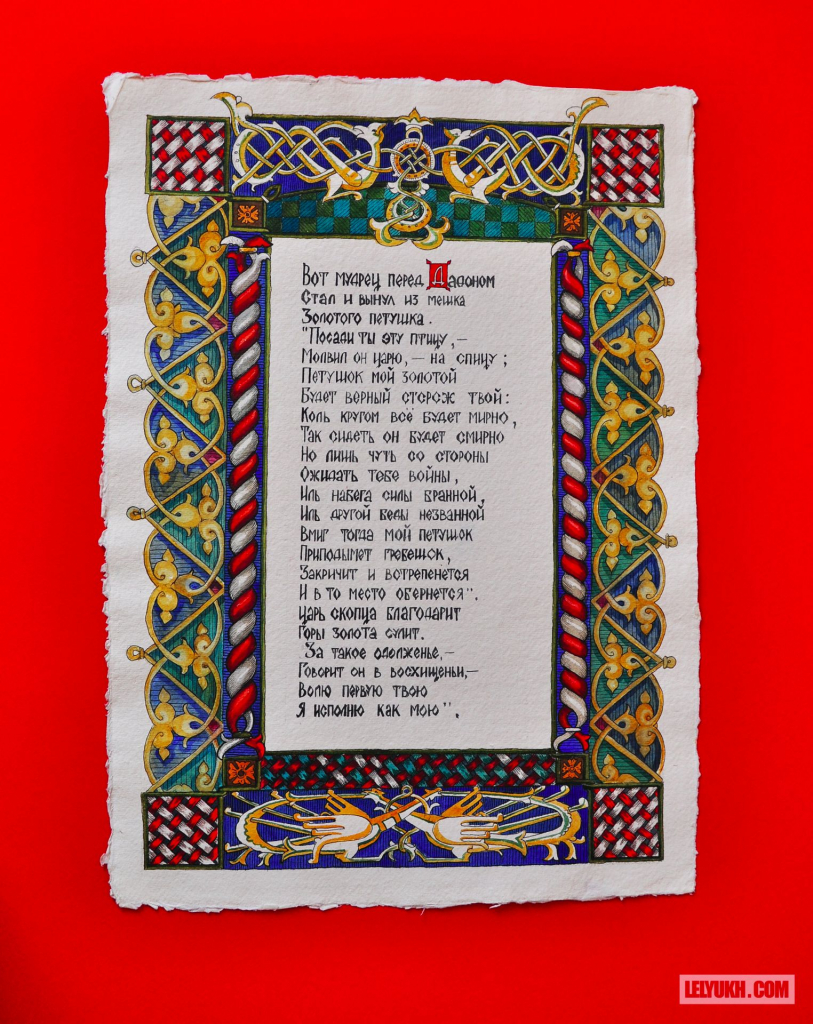 Вот мудрец перед Дадоном
Стал и вынул из мешка
Золотого петушка.
"Посади ты эту птицу, –
Молвил он царю, – на спицу;
Петушок мой золотой
Будет верный сторож твой:
Коль кругом всё будет мирно,
Так сидеть он будет смирно
Но лишь чуть со стороны
Ожидать тебе войны,
Иль набега силы бранной,
Иль другой беды незванной
Вмиг тогда мой петушок
Приподымет гребешок,
Закричит и встрепенется
И в то место обернется".
Царь скопца благодарит
Горы золота сулит.
"За такое одолженье, –
Говорит он в восхищеньи, –
Волю первую твою
Я исполню как мою".
LELYUKH.COM